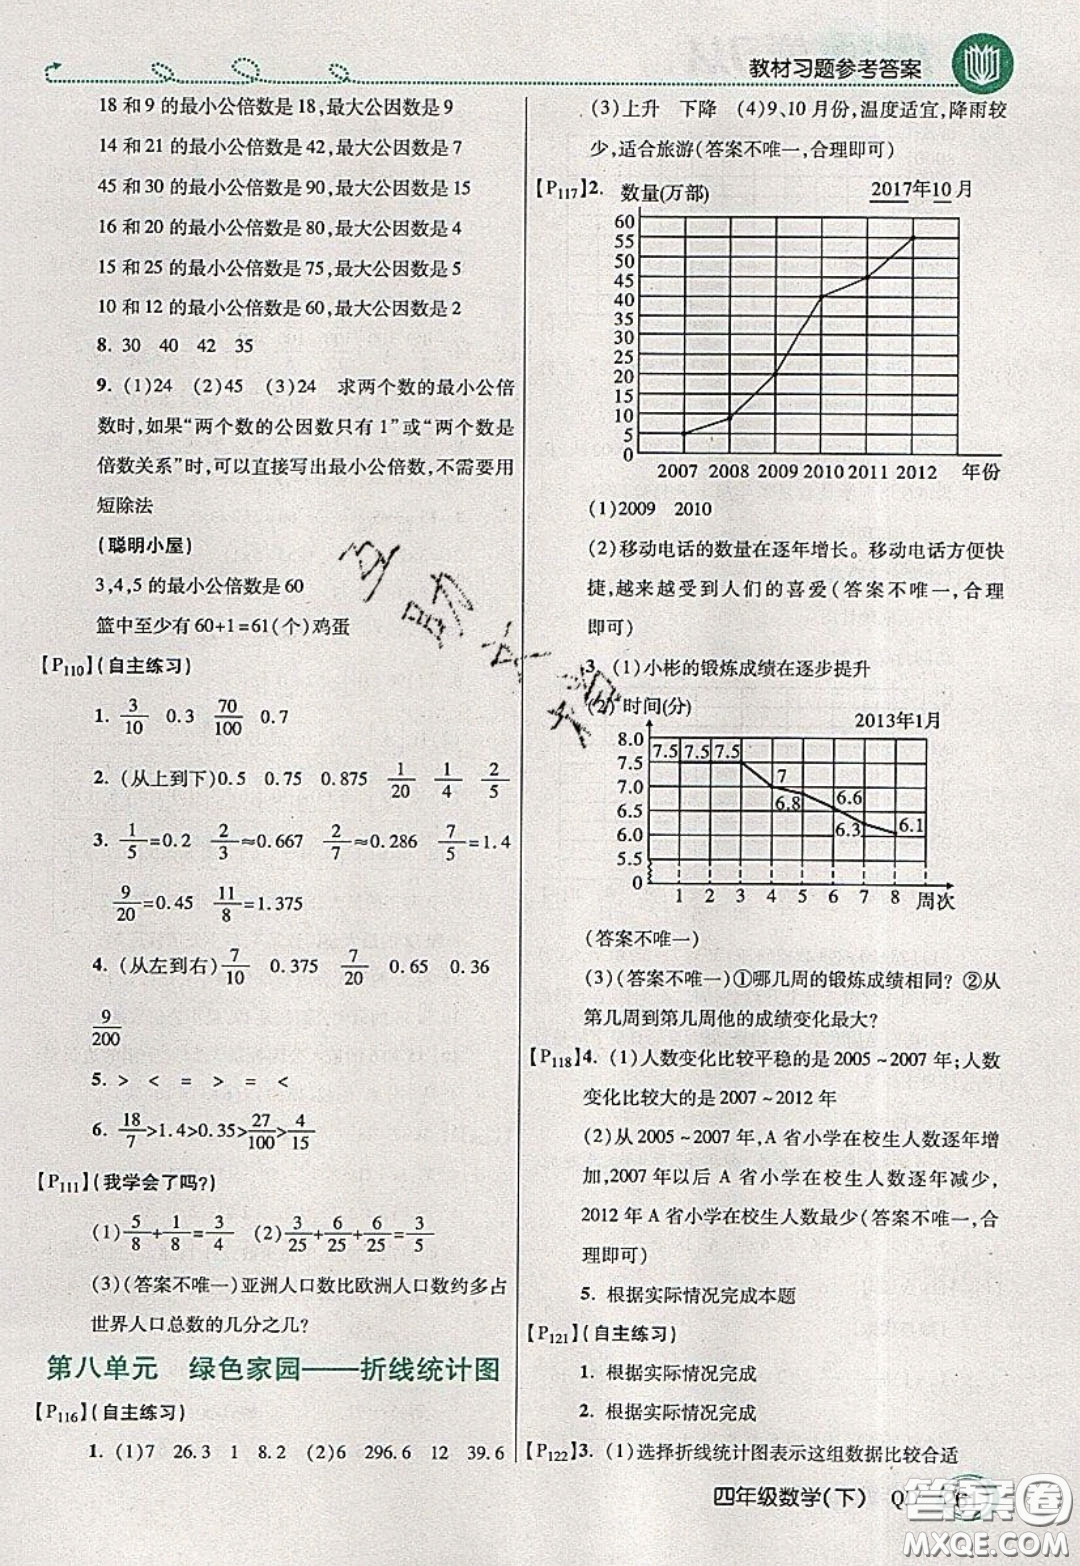 教材习题参考答案
18 和 9 的最小公倍数是 18,最大公因数是 9
14 和 21 的最小公倍数是 42,最大公因数是 7
45 和 30 的最小公倍数是 90,最大公因数是 15
16 和 20 的最小公倍数是 80,最大公因数是 4
15 和 25 的最小公倍数是 75,最大公因数是 5
10 和 12 的最小公倍数是 60,最大公因数是 2
8. 30 40 42 35
9. (1)24 (2)45 (3)24 求两个数的最小公倍
数时,如果“两个数的公因数只有 1”或“两个数是
倍数关系”时,可以直接写出最小公倍数,不需要用
短除法
(聪明小屋)
3,4,5 的最小公倍数是 60
篮中至少有 60+1=61(个)鸡蛋
【P110】(自主练习)
1. 3/10 0.3 70/100 0.7
2. (从上到下)0.5 0.75 0.875 1/20 1/4 2/5
3. 1/5=0.2 2/3≈0.667 2/7≈0.286 7/5=1.4
9/20=0.45 11/8=1.375
4. (从左到右)7/10 0.375 7/20 0.65 0.36
9/200
5. > < = > = <
6. 18/7>1.4>0.35>27/100>4/15
【P111】(我学会了吗?)
(1)5/8+1/8=3/4 (2)3/25+6/25+6/25=3/5
(3)(答案不唯一)亚洲人口数比欧洲人口数约多占
世界人口总数的几分之几?
第八单元 绿色家园——折线统计图
【P116】(自主练习)
1. (1)7 26.3 1 8.2 (2)6 296.6 12 39.6
(3)上升 下降 (4)9、10 月份,温度适宜,降雨较
少,适合旅游(答案不唯一,合理即可)
【P117】2. 数量(万部) 2017年10月
60
55
50
45
40
35
30
25
20
15
10
5
0
2007 2008 2009 2010 2011 2012 年份
(1)2009 2010
(2)移动电话的数量在逐年增长。移动电话方便快
捷,越来越受到人们的喜爱(答案不唯一,合理
即可)
3. (1)小彬的锻炼成绩在逐步提升
(2) 时间(分) 2013年1月
8.0
7.5 7.5 7.5 7.5
7.0 7
6.5 6.8 6.6
6.0 6.3 6.1
5.5
0
1 2 3 4 5 6 7 8 周次
(答案不唯一)
(3)(答案不唯一)①哪几周的锻炼成绩相同? ②从
第几周到第几周他的成绩变化最大?
【P118】4. (1)人数变化比较平稳的是 2005~2007 年;人数
变化比较大的是 2007~2012 年
(2)从 2005~2007 年,A 省小学在校生人数逐年增
加,2007 年以后 A 省小学在校生人数逐年减少,
2012 年 A 省小学在校生人数最少(答案不唯一,合
理即可)
5. 根据实际情况完成本题
【P121】(自主练习)
1. 根据实际情况完成
2. 根据实际情况完成
【P122】3. (1)选择折线统计图表示这组数据比较合适
四年级数学(下)
答案圈
MXQE.COM